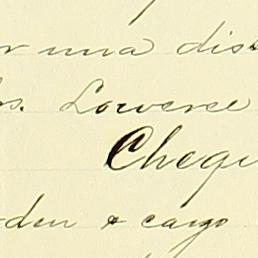 r una dis
s. Loweree
Chequ
den & cargo